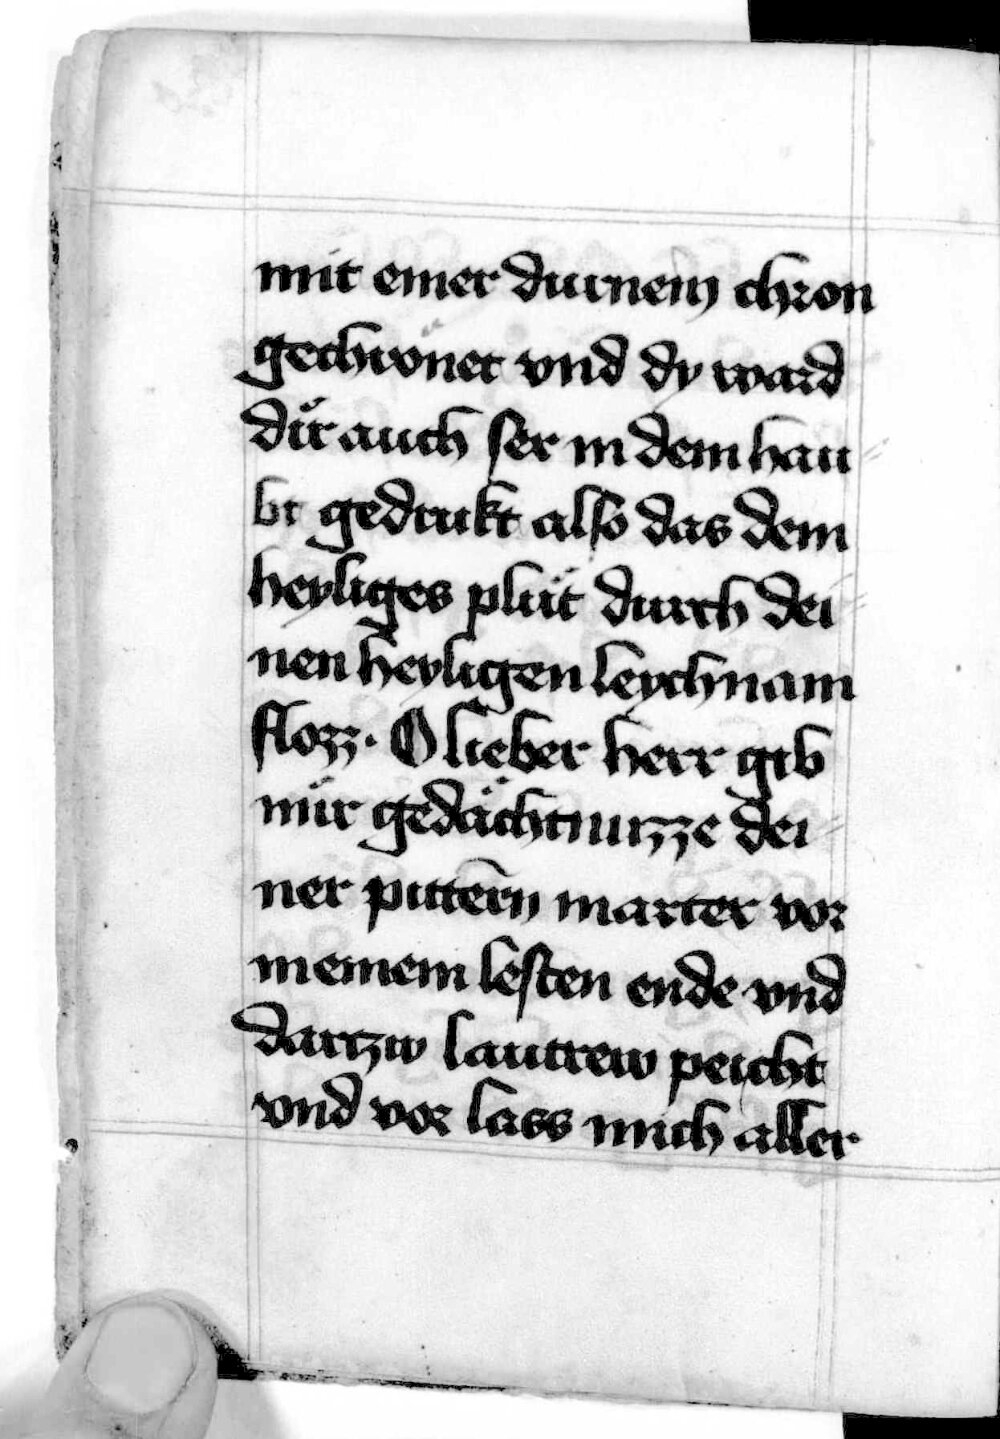 mit einer durnein chron
gechrönet vnd dy ward
dir auch ser in dem hau
bt gedrukt also das dein
heyliges plüt durch dei
nen heyligen leychnam
flozz. O lieber herr gib
mir gedächtnuzze dei
ner pittern marter vor
meinem lesten ende vnd
dartzw lautrew peicht
vnd vor lass mich aller